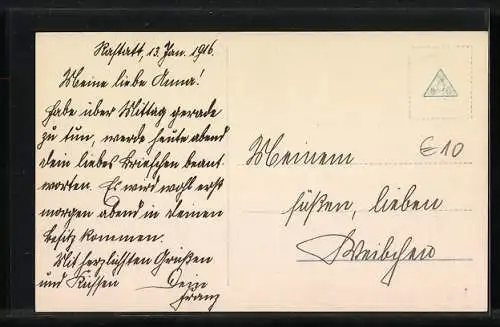 Rastatt, 13. Jan. 1916.
Meine liebe Anna!
Habe über Mittag gerade
zu tun, werde heute abend
dein liebes Brieflein beant-
worten. Es wird wohl erst
morgen abend in deinen
Besitz kommen.
Mit herzlichsten Grüßen
und Küssen Dein
Franz
Meinem
süßen, lieben
Weibchen
€10